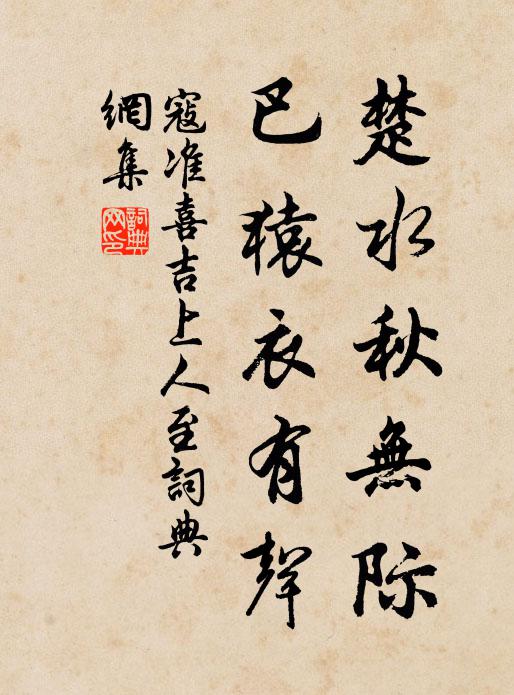 楚水秋無际
巴猿衣有聲
寇准喜吉上人至詞典
網集
詞典網印